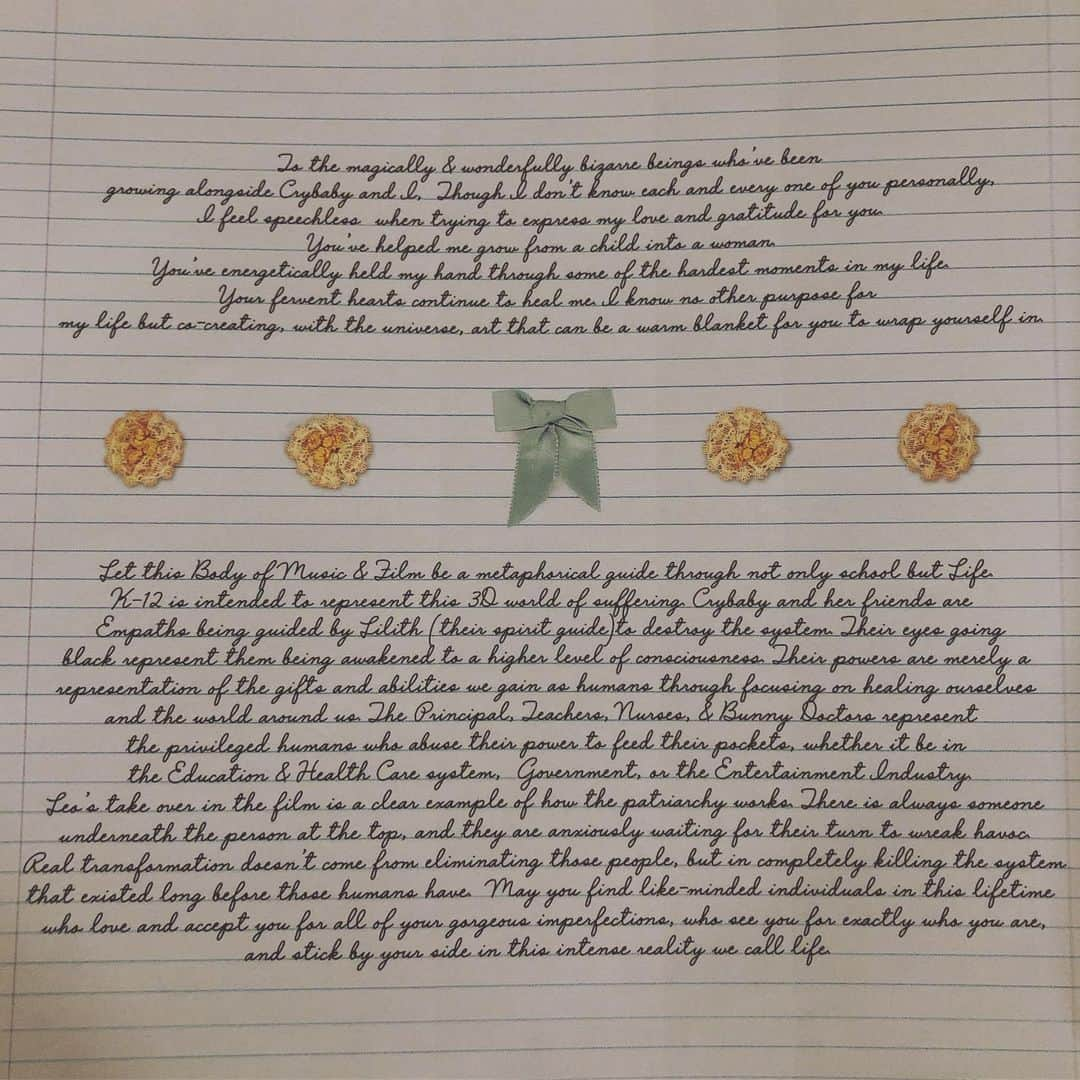 To the magically & wonderfully bizarre beings who've been
growing alongside Crybaby and I, Though I don't know each and every one of you personally,
I feel speechless when trying to express my love and gratitude for you.
You've helped me grow from a child into a woman.
You've energetically held my hand through some of the hardest moments in my life.
Your fervent hearts continue to heal me. I know no other purpose for
my life but co-creating, with the universe, art that can be a warm blanket for you to wrap yourself in.
Let this Body of Music & Film be a metaphorical guide through not only school but Life.
K-12 is intended to represent this 3D world of suffering. Crybaby and her friends are
Empaths being guided by Lilith (their spirit guide)to destroy the system. Their eyes going
black represent them being awakened to a higher level of consciousness. Their powers are merely a
representation of the gifts and abilities we gain as humans through focusing on healing ourselves
and the world around us. The Principal, Teachers, Nurses, & Bunny Doctors represent
the privileged humans who abuse their power to feed their pockets, whether it be in
the Education & Health Care system, Government, or the Entertainment Industry.
Leo's take over in the film is a clear example of how the patriarchy works. There is always someone
underneath the person at the top, and they are anxiously waiting for their turn to wreak havoc.
Real transformation doesn't come from eliminating those people, but in completely killing the system
that existed long before those humans have. May you find like-minded individuals in this lifetime
who love and accept you for all of your gorgeous imperfections, who see you for exactly who you are,
and stick by your side in this intense reality we call life.